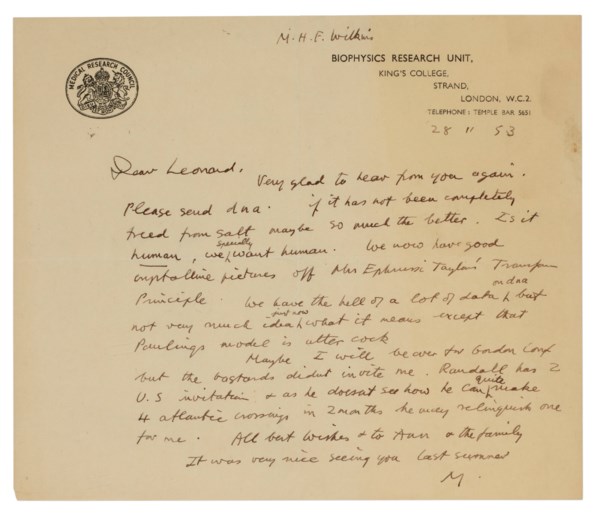 M. H. F. Wilkins
MEDICAL RESEARCH COUNCIL
BIOPHYSICS RESEARCH UNIT,
KING'S COLLEGE,
STRAND,
LONDON, W.C.2.
TELEPHONE: TEMPLE BAR 5651
28 II 53
Dear Leonard,
Very glad to hear from you again.
Please send dna. If it has not been completely
freed from salt maybe so much the better. Is it
human, we specially want human. We now have good
crystalline pictures off Mrs Ephrussi Taylor's Transform
Principle. We have the hell of a lot of data on dna & but
not very much idea just now what it means except that
Paulings model is utter cock
Maybe I will be over for Gordon Conf
but the bastards didnt invite me. Randall has 2
U.S invitation & as he doesnt see how he can quite make
4 atlantic crossings in 2 months he may relinquish one
for me. All best wishes & to Ann & the family
It was very nice seeing you last summer
M.